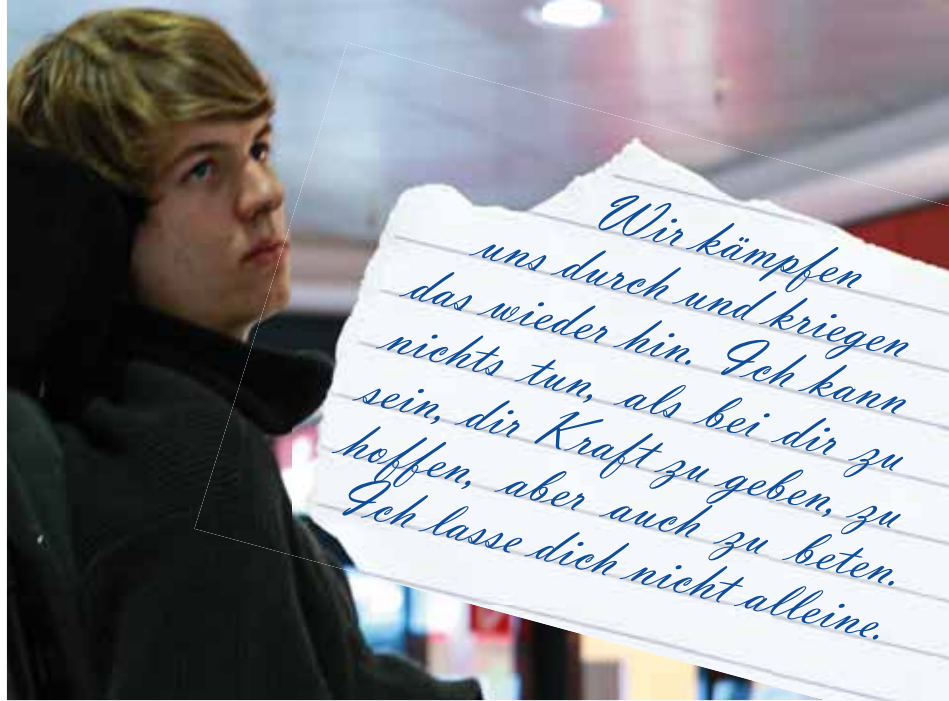 Wir kämpfen
uns durch und kriegen
das wieder hin. Ich kann
nichts tun, als bei dir zu
sein, dir Kraft zu geben, zu
hoffen, aber auch zu beten.
Ich lasse dich nicht alleine.